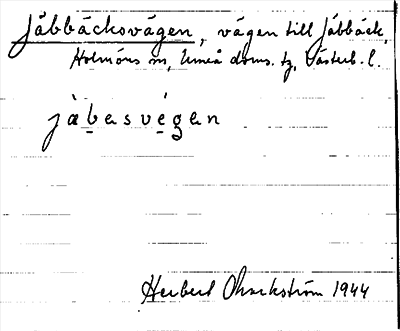 Jåbbäcksvägen, vägen till Jåbbäck,
Holmöns sn, Umeå doms. tg, Västerb. l.
jàbasvégan
Herbert 1944